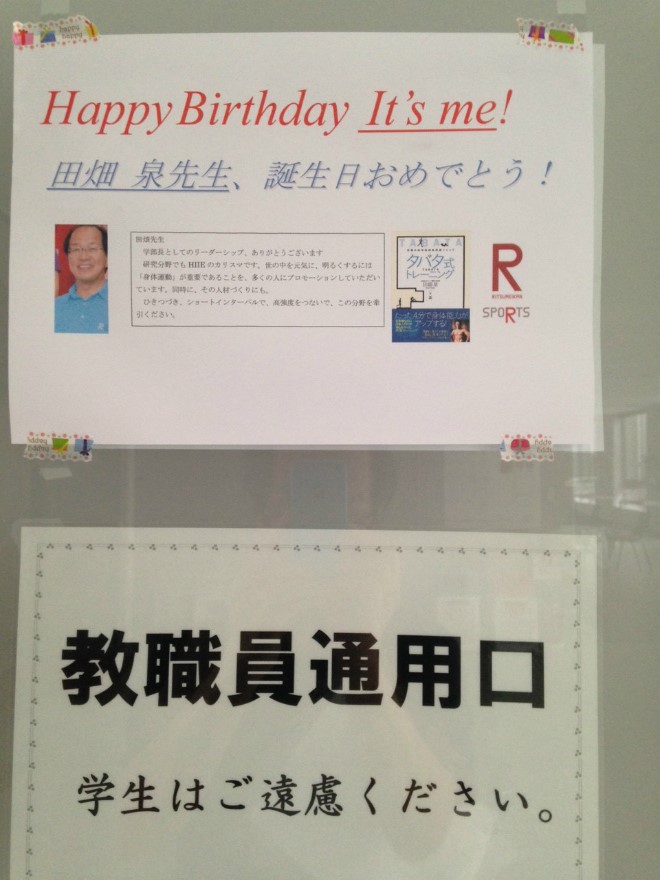 happy
happy
Happy Birthday It's me!
田畑 泉先生、誕生日おめでとう！
田畑先生
学部長としてのリーダーシップ、ありがとうございます
研究分野でも HIIE のカリスマです。世の中を元気に、明るくするには
「身体運動」が重要であることを、多くの人にプロモーションしていただい
ています。同時に、その人材づくりにも。
ひきつづき、ショートインターバルで、高強度をつないで、この分野を牽
引ください。
TABATA
タバタ式
トレーニング
たった4分で身体能力が
アップする!
R
RITSUMEIKAN
SPORTS
教職員通用口
学生はご遠慮ください。